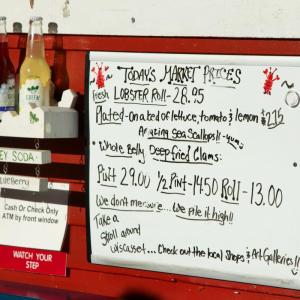 Today's Market Prices
Fresh LOBSTER ROLL - 28.95
Plated - on a bed of lettuce, tomato & lemon $2.75
Amazing Sea Scallops!! - yum
Whole Belly Deep fried Clams:
Pint 29.00 1/2 Pint - 14.50 Roll - 13.00
We don't measure... We pile it high!!
Take a
Stroll around
Wiscasset... Check out the local Shops & Art Galleries!!
GREEN
EY SODA
Blueberry
Cash Or Check Only
ATM by front window
WATCH YOUR
STEP